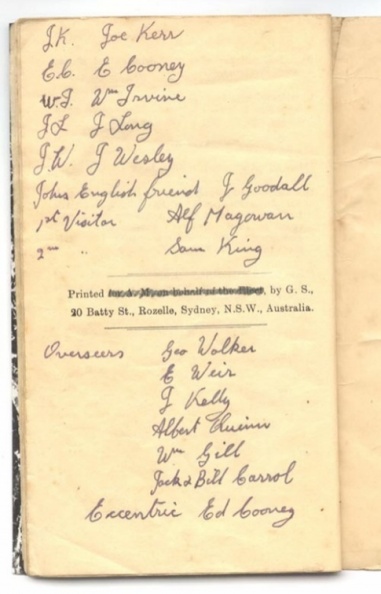 J.K. Joe Kerr
E.C. E Cooney
W.I. Wm Irvine
J L J Long
J.W. J Wesley
Johns English friend J Goodall
1st Visitor Alf Magowan
2nd " Sam King
Printed by G. S.,
20 Batty St., Rozelle, Sydney, N.S.W., Australia.
Overseers Geo Walker
E Weir
J Kelly
Albert Quinn
Wm Gill
Jack & Bill Carrol
Eccentric Ed Cooney